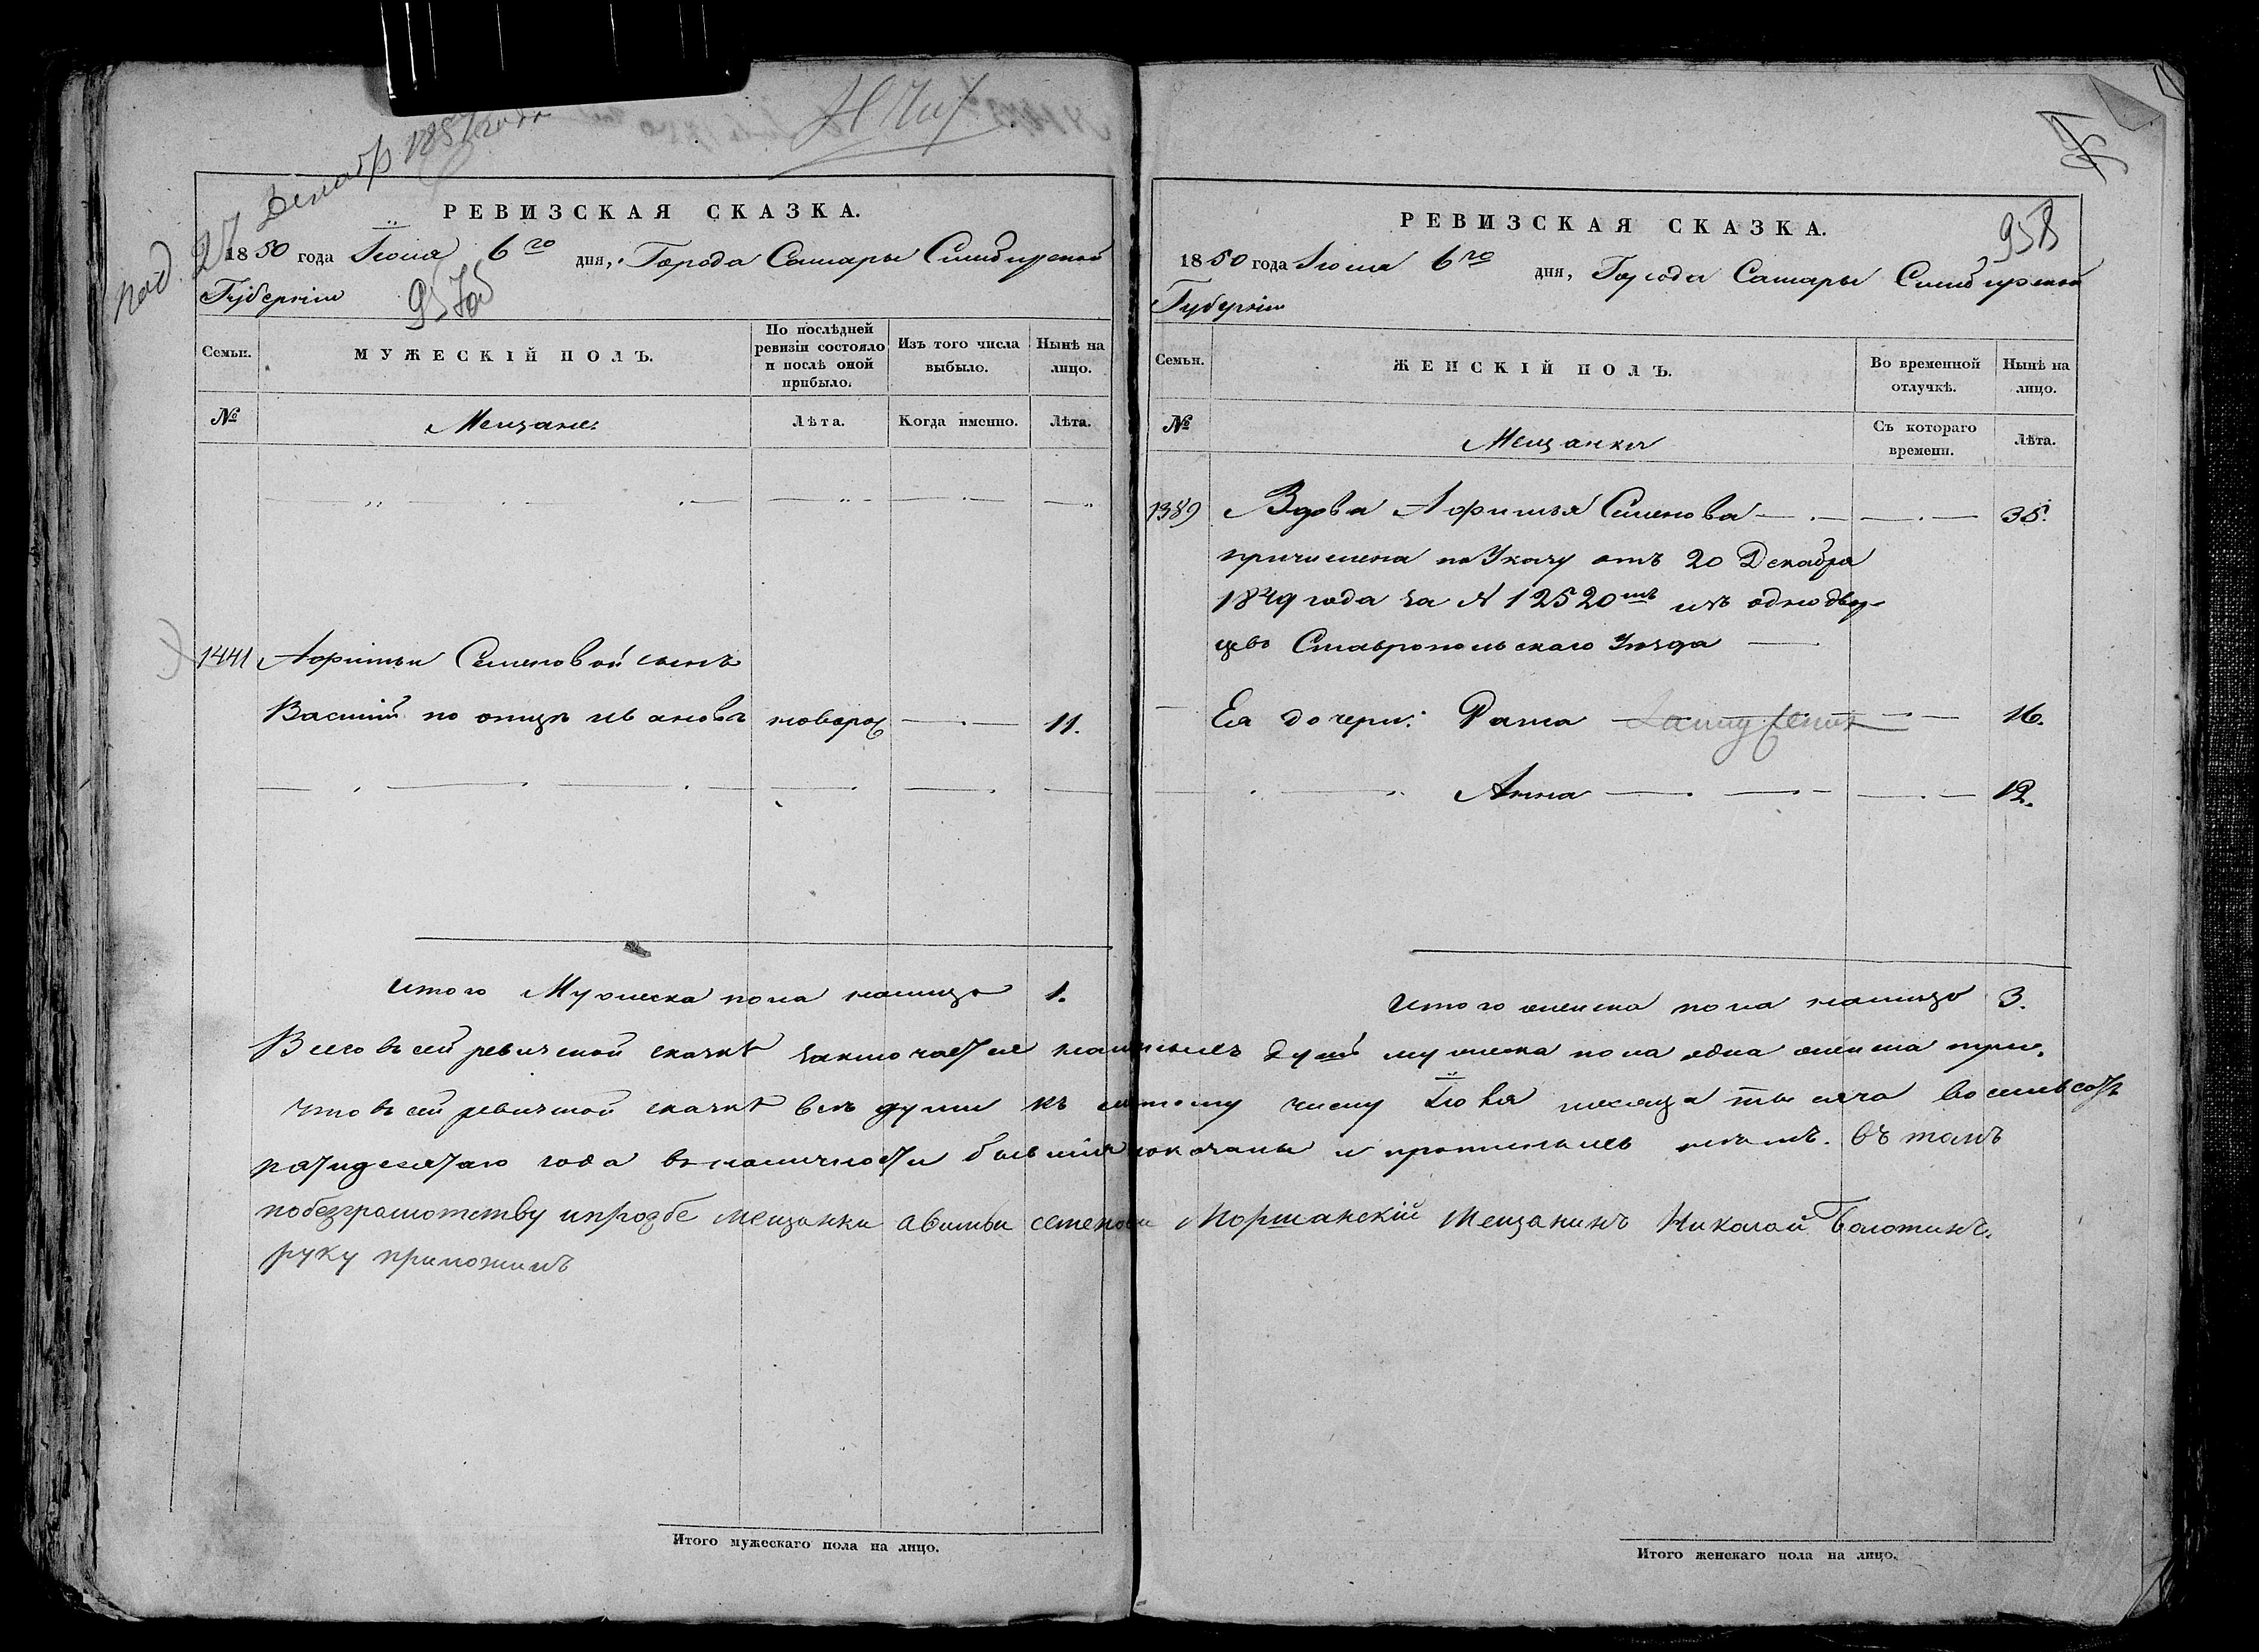 под. 27 Декабр 1857 года
РЕВИЗСКАЯ СКАЗКА.
1850 года Іюня 6го дня, Города Самары Симбирской
Губерніи
957об
Семьи.
МУЖЕСКІЙ ПОЛЪ.
По послѣдней ревизіи состояло и послѣ оной прибыло.
Изъ того числа выбыло.
Нынѣ на лицо.
№
Мещане.
Лѣта.
Когда именно.
Лѣта.
1441 Афимьи Семеновой сынъ
Василій по отцѣ Ивановъ новорож 11.
Итого Мужеска пола налицо 1.
РЕВИЗСКАЯ СКАЗКА.
958
1850 года Іюня 6го дня, Города Самары Симбирской
Губерніи
Семьи.
ЖЕНСКІЙ ПОЛЪ.
Во временной отлучкѣ.
Нынѣ на лицо.
№
Мещанки
Съ котораго времени.
Лѣта.
1389 Вдова Афимья Семенова 35.
причислена по Указу отъ 20 Декабря
1849 года за № 12520мъ изъ однодвор-
цевъ Ставропольскаго Уезда
Ея дочери: 16.
Анна 12.
Итого женска пола налицо 3.
Всего в сей ревизской сказкѣ заключается наличныхъ душъ мужеска пола одна женска три.
что в сей ревизской сказкѣ всѣ души къ числу Іюня месяца тысяча восемьсотъ
пятидесятаго года в наличности бывшія показаны и прописныхъ нетъ. въ томъ
по безграмотству и прозбе мещанки авимьи семеновы Моршанскій Мещанинъ Николай Болотинъ.
руку приложилъ
Итого мужескаго пола на лицо.
Итого женскаго пола на лицо.